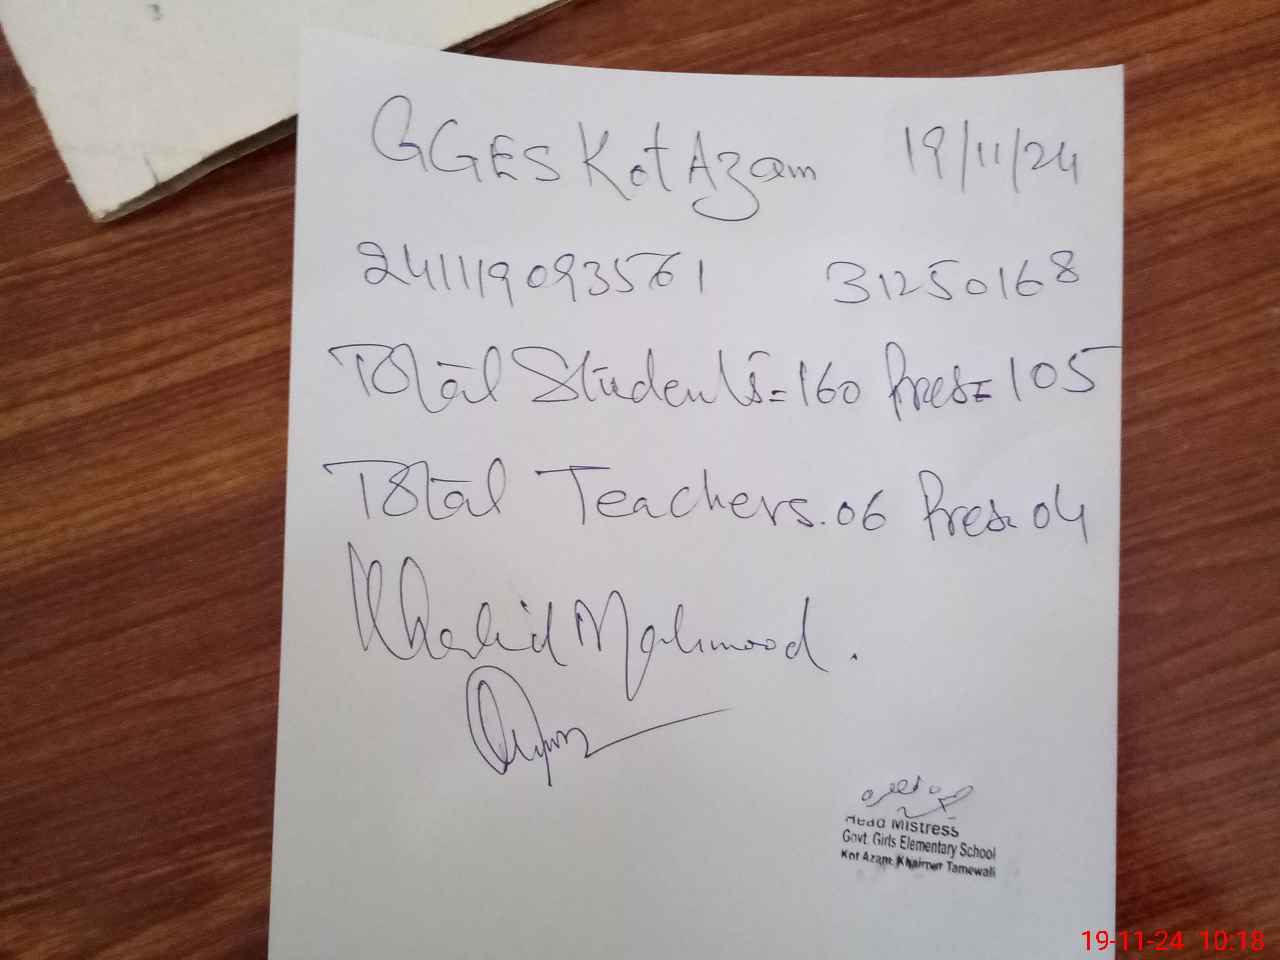 GGES Kot Azam 19/11/24
241119093561 31250168
Total Students = 160 Pres = 105
Total Teachers. 06 Pres. 04
Khalid Mahmood.
Head Mistress
Govt. Girls Elementary School
Kot Azam Khairpur Tamewali
19-11-24 10:18